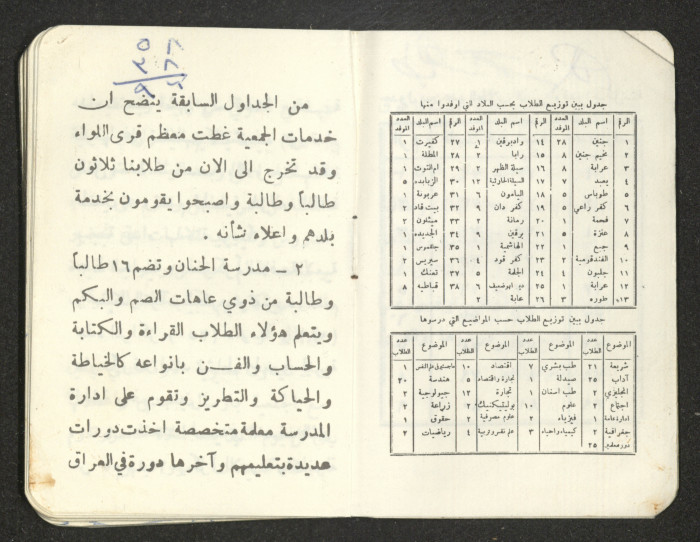 جدول يبين توزيع الطلاب بحسب البلاد التي اوفدوا منها
الرقم اسم البلد العدد الموفد الرقم اسم البلد العدد الموفد الرقم اسم البلد العدد الموفد
١ جنين ٢٨ ١٤ واد برقين ١ ٢٧ كفيرت ١
٢ مخيم جنين ٨ ١٥ رابا ٢ ٢٨ المطلة ١
٣ عرابة ٨ ١٦ سيلة الظهر ٢ ٢٩ ام التوت ١
٤ يعبد ٧ ١٧ السيلة الحارثية ١٢ ٣٠ الزبابده ٥
٥ طوباس ٥ ١٨ اليامون ٦ ٣١ عربونة ١
٦ كفر راعي ٥ ١٩ كفر دان ٩ ٣٢ بيت قاد ٢
٧ فحمة ١ ٢٠ رمانة ٢ ٣٣ ميثلون ٢
٨ عنزة ٥ ٢١ برقين ٩ ٣٤ الجديده ٥
٩ جبع ١ ٢٢ الهاشمية ١ ٣٥ جلقموس ١
١٠ الفندقومية ٢ ٢٣ كفر قود ٤ ٣٦ سيريس ٢
١١ جلبون ٤ ٢٤ الجلمة ٥ ٣٧ تعنك ١
١٢ عرابة ١ ٢٥ دير ابو ضعيف ٦ ٣٨ قباطيه ٨
١٣ طوره ٣ ٢٦ عابا ٢
جدول يبين توزيع الطلاب حسب المواضيع التي درسوها
الموضوع عدد الطلاب الموضوع عدد الطلاب الموضوع عدد الطلاب الموضوع عدد الطلاب
شريعة ٢١ طب بشري ٧ اقتصاد ١٠ ١
آداب ٢٥ صيدلة ١ تجارة واقتصاد ٥ هندسة ٣٠
انجليزي ٢ طب اسنان ١ تجارة ١٢ جيولوجية ٢
اجتماع ٢ علوم ١٠ بوليتيكنيك ٢ زراعة ٢
ادارة عامة ١ فيزياء ٢ علوم مصرفية ٢ حقوق ١
جغرافية ٢ كيمياء واحياء ٣ علم نفس وتربية ٤ رياضيات ٢
٢٥
من الجداول السابقة يتضح ان
خدمات الجمعية غطت معظم قرى اللواء
وقد تخرج الى الان من طلابنا ثلاثون
طالباً وطالبة واصبحوا يقومون بخدمة
بلدهم واعلاء شأنه .
٢ ـ مدرسة الحنان وتضم ١٦ طالباً
وطالبة من ذوي عاهات الصم والبكم
ويتعلم هؤلاء الطلاب القراءة والكتابة
والحساب والفـــن بانواعه كالخياطة
والحياكة والتطريز وتقوم على ادارة
المدرسة معلمة متخصصة اخذت دورات
عديدة بتعليمهم وآخرها دورة في العراق